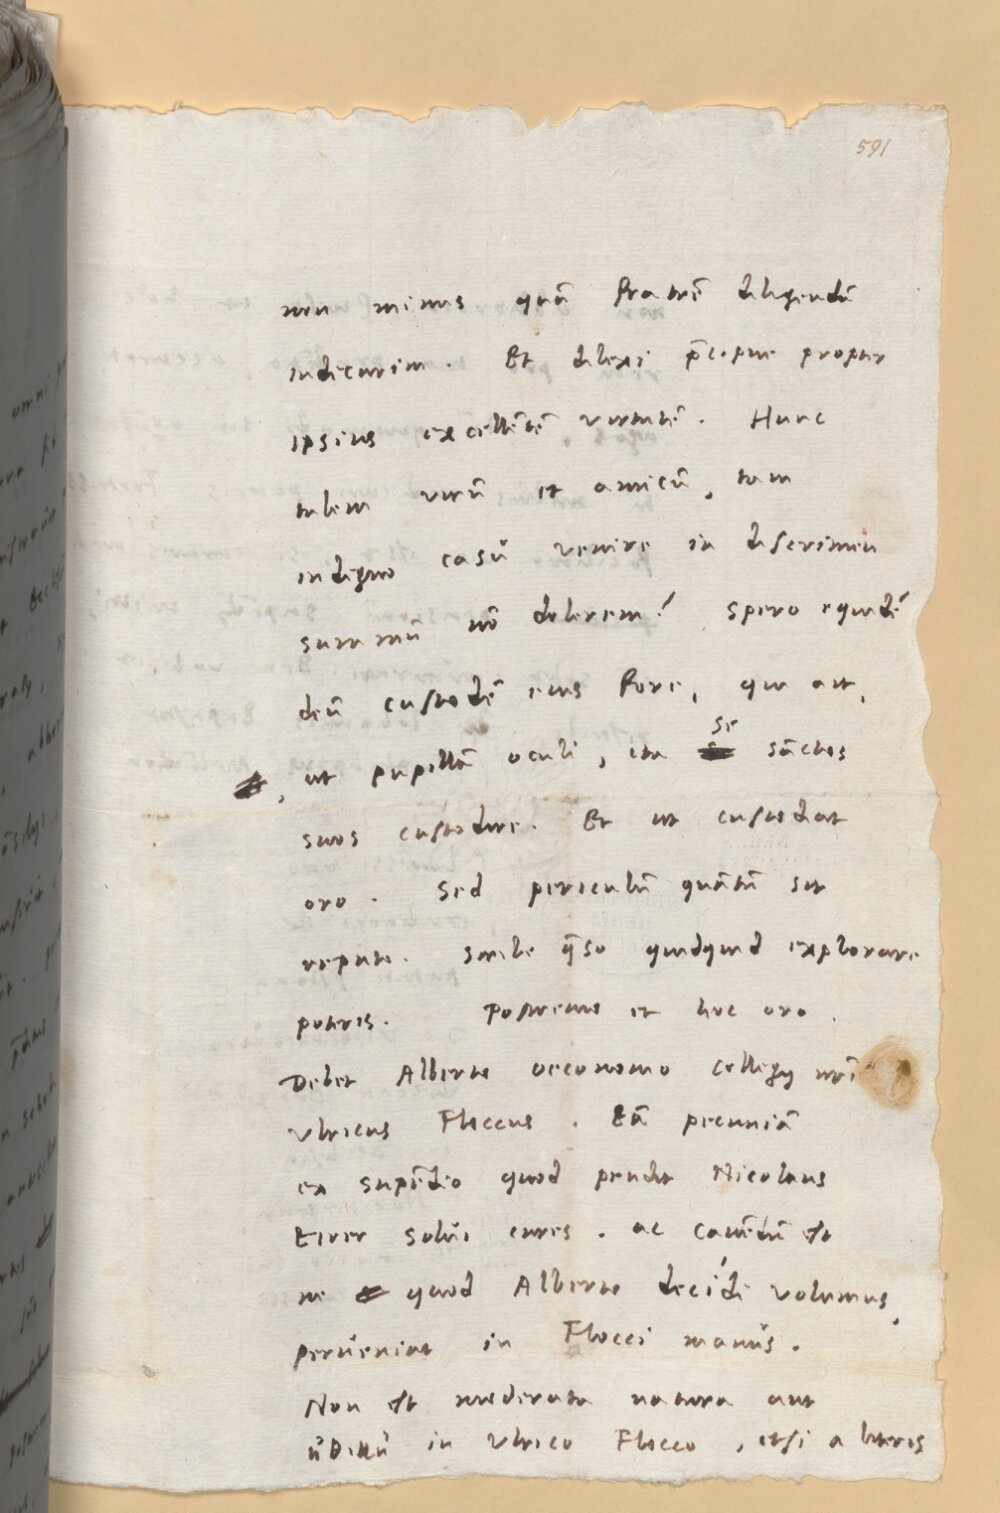 591
non minus quā fratrē diligendū
indicarim. Et dilexi p̄cipue propter
ipsius excellētē virtutē. Hunc
talem virū et amicū, tam
indigno casu venire in discrimen
summū nō dolerem? Spero equidē
deū custodē eius fore, qui ait,
ut pupillā oculi, ita se sāctos
suos custodire. Et ut custodiat
oro. Sed periculū quātū sit
reputa. Scribe q̄so quidquid explorare
poteris. Postremo et hoc oro.
Debet Alberto oeconomo collegij nrī
Vlricus Floccus. Eā pecuniā
ex stipēdio quod pendit Nicolaus
solui cures. ac cauēdū est
ne quod Alberto decidi volumus,
perueniat in Flocci manus.
Non est moderata natura aut
in Vlrico Flocco, etsi a literis